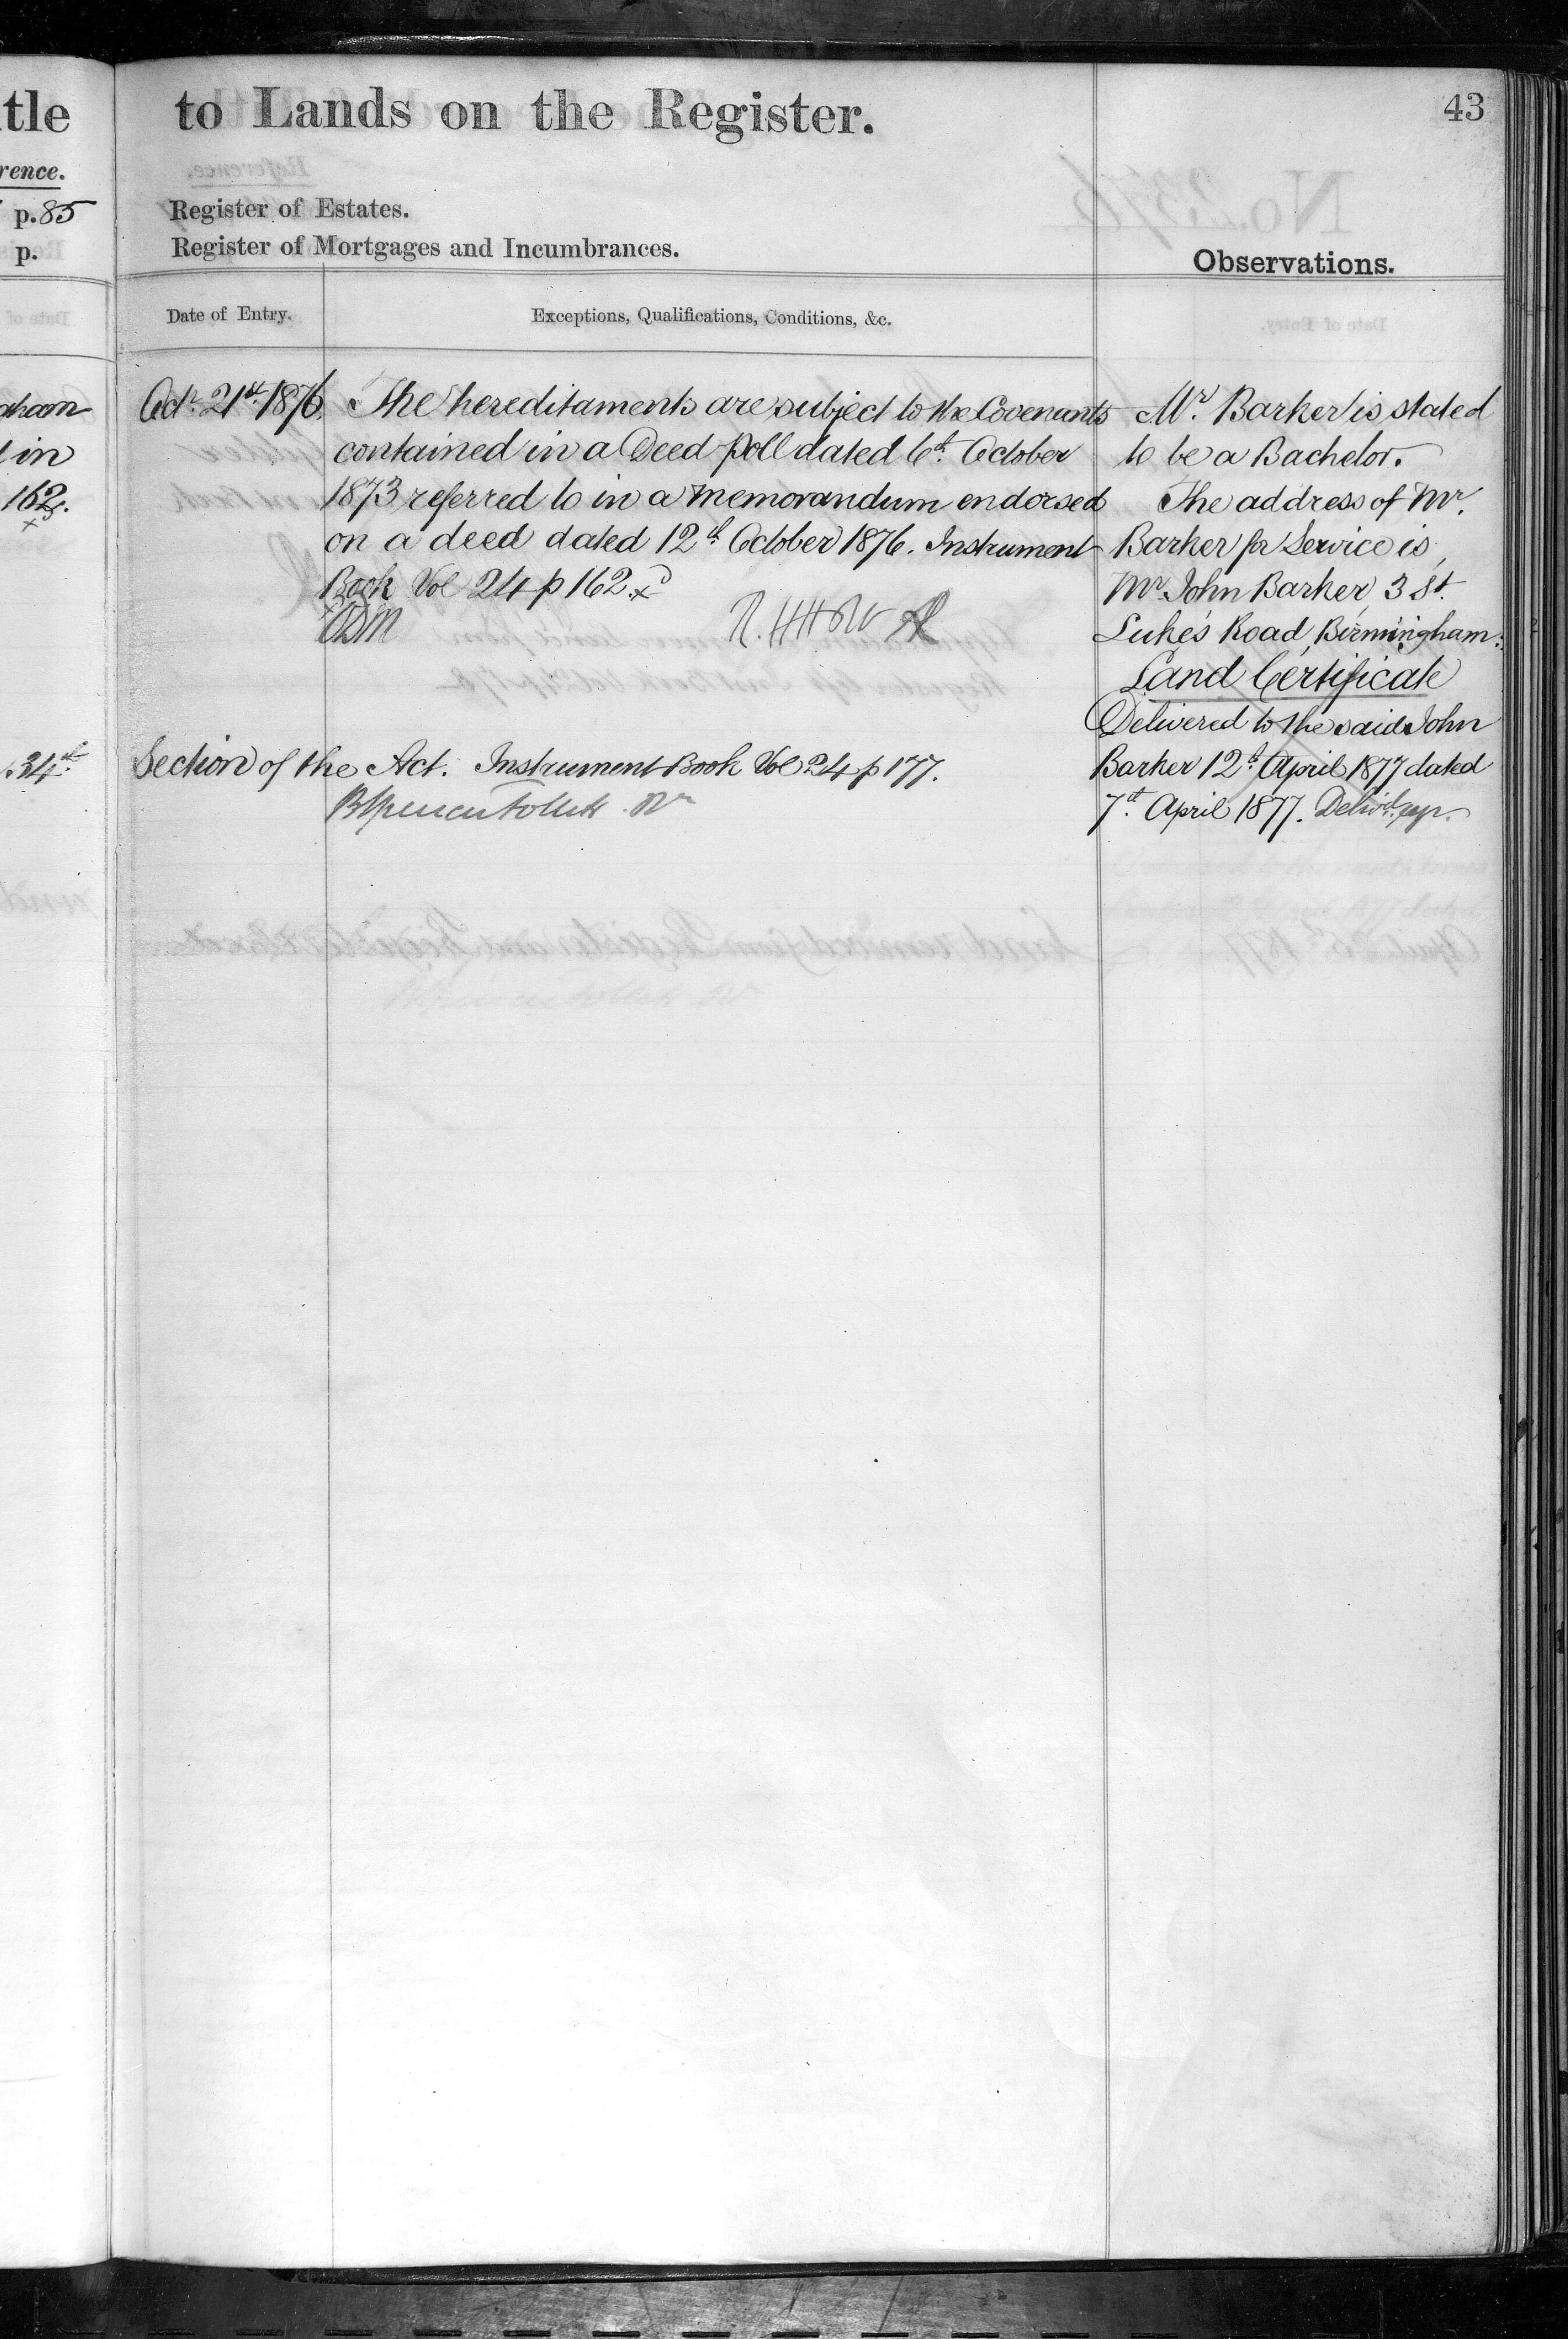 tle
rence.
p. 85
p.
aham
in
162.
34th
to Lands on the Register.
43
Register of Estates.
Register of Mortgages and Incumbrances.
Observations.
Date of Entry.
Exceptions, Qualifications, Conditions, &c.
Octr. 21st. 1876.
The hereditaments are subject to the Covenants
contained in a Deed Poll dated 6th. October
1873 referred to in a memorandum endorsed
on a deed dated 12th October 1876. Instrument
Book Vol 24 p 162.
Section of the Act. Instrument Book Vol 24 p 177.
Mr. Barker is stated
to be a Bachelor.
The address of Mr.
Barker for Service is,
Mr. John Barker, 3 St.
Luke's Road, Birmingham.
Land Certificate
Delivered to the said John
Barker 12th April 1877 dated
7th. April 1877.